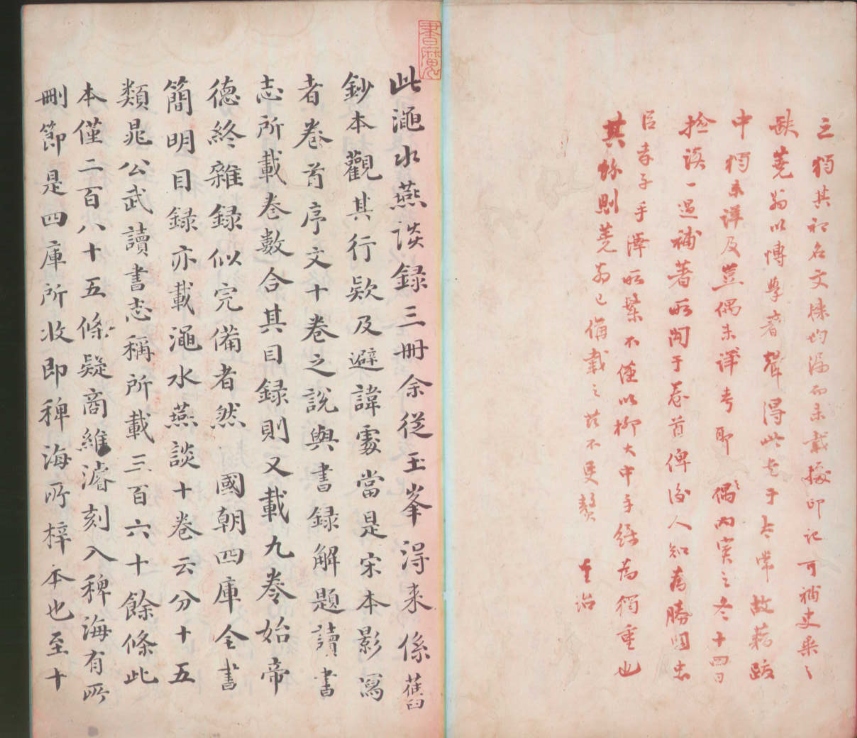 之獨其初名文殊均漏而未載據印記可補史乘之
缺蕘翁以博學著聲得此書于
中獨未詳及豈偶未詳考耶偶內寅之冬十四日
檢讀一過補著所聞于卷首俾後人知為勝國忠
臣孝子手澤所繫不僅以柳大中手錄為獨重也
其餘則蕘翁已備載之茲不更贅
書魔
此澠水燕談錄三冊余從玉峯得來係舊
鈔本觀其行欵及避諱處當是宋本影寫
者卷首序文十卷之說與書錄解題讀書
志所載卷數合其目錄則又載九卷始帝
德終雜錄似完備者然 國朝四庫全書
簡明目錄亦載澠水燕談十卷云分十五
類晁公武讀書志稱所載三百六十餘條此
本僅二百八十五條疑商維濬刻入稗海有所
刪節是四庫所收即稗海所梓本也至十